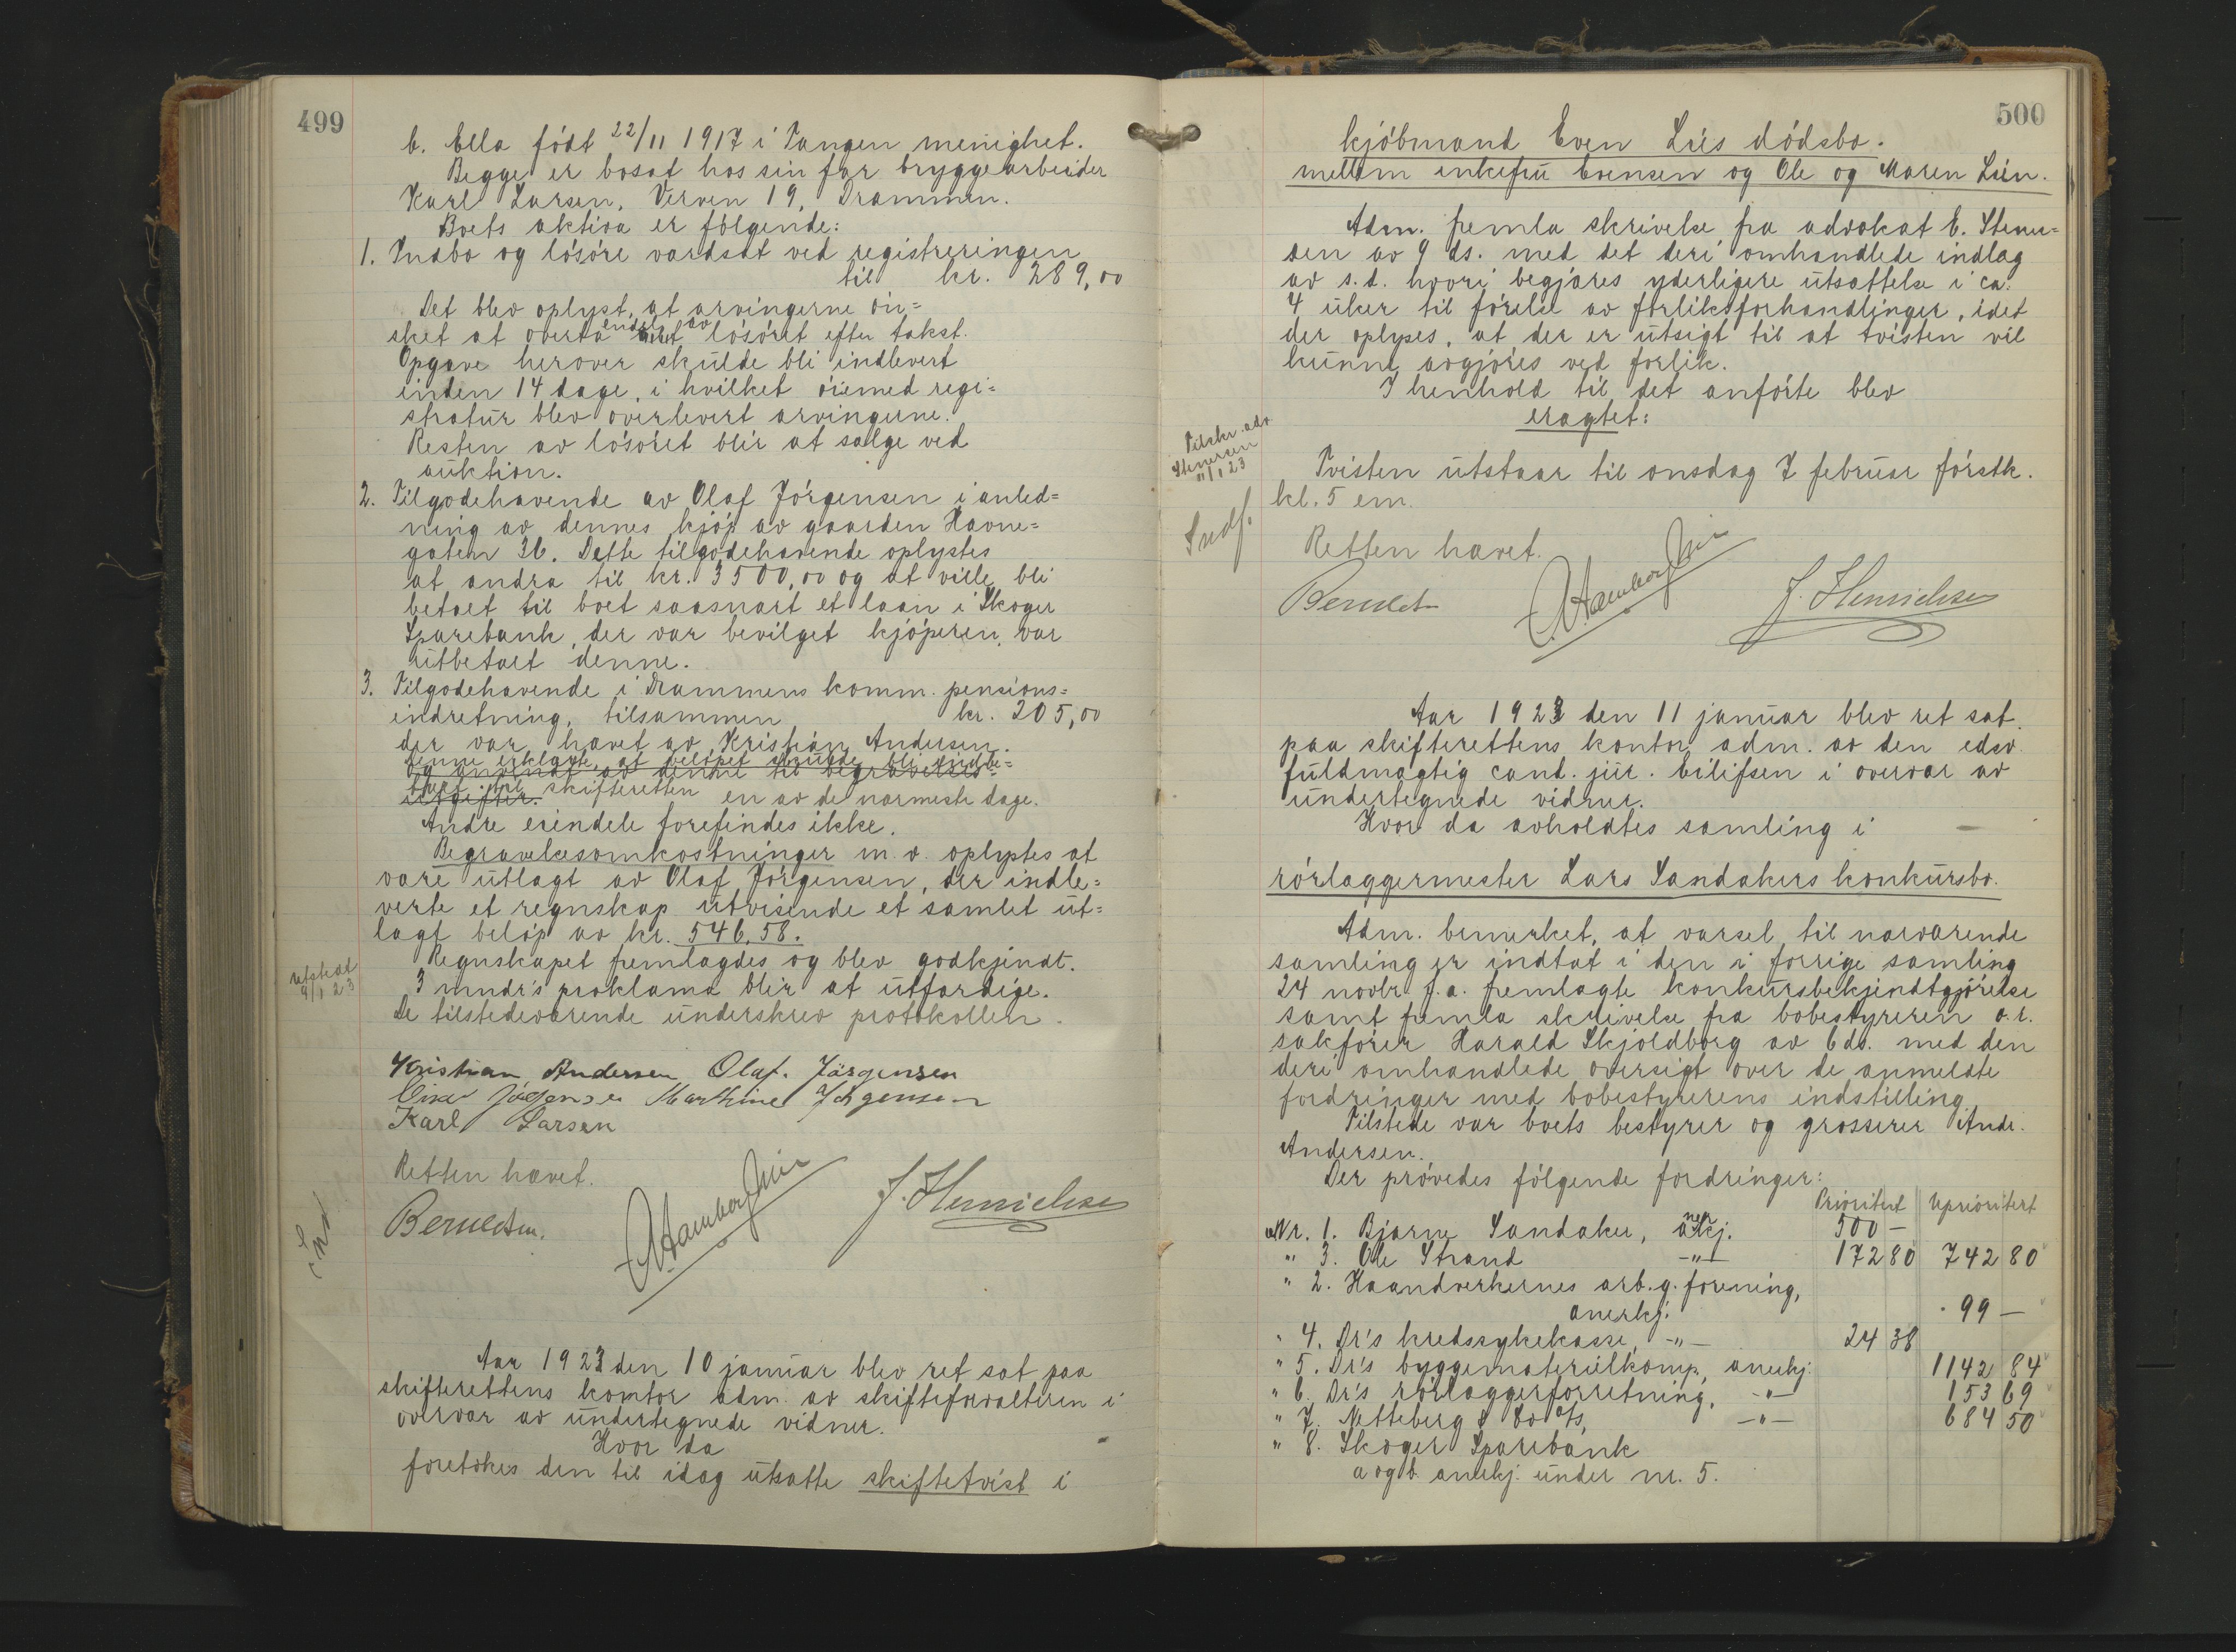 499
b. Ella födt 22/11 1917 i Tangen menighet.
Begge er bosat hos sin far bryggearbeider
Karl Larsen, Verven 19, Drammen.
Boets aktiva er følgende:
1. Indbo og løsøre værdsat ved registreringen
til kr. 289,00
Det blev oplyst, at arvingerne øn=
sket at overta endel av løsøret efter takst.
Opgave herover skulde bli indlevert
inden 14 dage, i hvilket øiemed regi=
stratur blev overlevert arvingerne.
Resten av løsøret blir at sælge ved
auktion.
2. Tilgodehavende av Olaf Jörgensen i anled=
ning av dennes kjøp av gaarden Havne=
gaten 36. Dette tilgodehavende oplystes
at andra til kr. 3500,00 og at ville bli
betalt til boet saasnart et laan i Skoger
Sparebank, der var bevilget kjøperen, var
utbetalt denne.
3. Tilgodehavende i Drammens komm. pensions=
indretning, tilsammen kr. 205,00
der var hævet av Kristian Andersen.
Denne erklærte, at beløpet skulde bli indbe=
og anvendt av denne til begravelses=
talt til skifteretten en av de nærmeste dage.
utgifter.
Andre eiendele forefindes ikke.
Begravelsesomkostninger m.v. oplystes at
være utlagt av Olaf Jörgensen, der indle=
verte et regnskap utvisende et samlet ut=
lagt beløp av kr. 546,58.
Regnskapet fremlagdes og blev godkjendt.
utstedt
9/1 23
3 mndr's proklama blir at utfærdige.
De tilstedeværende underskrev protokollen.
Kristian Andersen Olaf. Jörgensen
Jørgensen Marthine Jørgensen
Karl Larsen
Retten hævet.
Berntsen. J. Henrichsen
Ind
Aar 1923 den 10 januar blev ret sat paa
skifterettens kontor adm. av skifteforvalteren i
overvær av undertegnede vidner.
Hvor da
foretokes den til idag utsatte skiftetvist i
500
kjøbmand Even Liis dødsbo.
mellem enkefru Evensen og Ole og Maren Lien.
Adm. fremla skrivelse fra advokat E. Stener=
sen av 9 ds. med det deri omhandlede indlæg
av s.d. hvori begjæres yderligere utsættelse i ca.
4 uker til førelse av forliksforhandlinger, idet
der oplyses, at der er utsigt til at tvisten vil
kunne avgjøres ved forlik.
I henhold til det anførte blev
eragtet:
Tilskr. adv
Stenersen
11/1 23
Tvisten utstaar til onsdag 7 februar førstk.
kl. 5 em.
Indf.
Retten hævet.
Berntsen J. Henrichsen
Aar 1923 den 11 januar blev ret sat
paa skifterettens kontor adm. av den edsv.
fuldmægtig cand. jur. Eilifsen i overvær av
undertegnede vidner.
Hvor da avholdtes samling i
rørlæggermester Lars Sandakers konkursbo.
Adm. bemerket, at varsel til nærværende
samling er indtat i den i forrige samling
24 novbr f.a. fremlagte konkursbekjendtgjørelse
samt fremla skrivelse fra bobestyreren o.r.
sakfører Harald Skjoldborg av 6 ds. med den
deri omhandlede oversigt over de anmeldte
fordringer med bobestyrerens indstilling.
Tilstede var boets bestyrer og grosserer Andr.
Andersen.
Der prøvedes følgende fordringer:
Prioritert Uprioritert
Nr. 1. Bjarne Sandaker, anerkj. 500 —
" 3. Ole Strand —"— 172 80 742 80
" 2. Haandverkernes arb.g. forening,
anerkj. 99 —
" 4. Dr's kredssykekasse, —"— 24 38
" 5. Dr's byggematerialkomp., anerkj. 1142 84
" 6. Dr's rørlæggerforretning, —"— 153 69
" 7. Netteberg & Co A/S, —"— 684 50
" 8. Skoger Sparebank
a og b anerkj. under nr. 5.